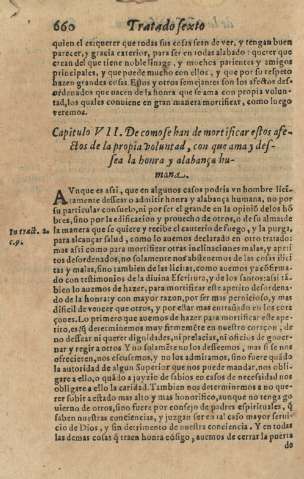 660 Tratado sexto
quien el exiquerer que todas sus cosas sean de ver, y tengan buen
parecer, y gracia exterior, para ser en todas alabado: querer que
crean del que tiene noble linage, y muchos parientes y amigos
principales, y que puede mucho con ellos, y que por su respeto
hazen grandes cosas. Estos y otros semejantes son los afectos des-
ordenados que nacen de la honra que se ama con propia volun-
tad, los quales conuiene en gran manera mortificar, como luego
veremos.
Capitulo VII. De como se han de mortificar estos afe-
ctos de la propia voluntad, con que ama y des-
sea la honra y alabança hu-
mana.
AVnque es assi, que en algunos casos podria vn hombre lici-
tamente dessear o admitir honra y alabança humana, no por
su particular consuelo, ni por ser grande en la opiniõ delos hõ
bres, sino por la edificacion y prouecho de otros, o de su alma: de
In tract. 2.
c. 9.
la manera que se quiere y recibe el cauterio de fuego, y la purga,
para alcançar salud, como lo auemos declarado en otro tratado:
mas assi como para mortificar otras inclinaciones malas, y apeti
tos desordenados, no solamente nos abstenemos de las cosas illici
tas y malas, sino tambien de las licitas, como auemos ya confirma-
do con testimonios de la diuina Escritura, y de los santos: assi tã-
bien lo auemos de hazer, para mortificar este apetito desordena-
do de la honra: y con mayor razon, por ser mas pernicioso, y mas
dificil de vencer que otros, y por estar mas entrañado en los cora
çones. Lo primero que auemos de hazer para mortificar este ape-
tito, es, q̃ determinemos muy firmemẽte en nuestro coraçon, de
no dessear ni querer dignidades, ni prelacias, ni oficios de gouer-
nar y regir a otros. Y no solamẽte no los desseemos, mas si se nos
ofrecieren, nos escusemos, y no los admitamos, sino fuere quãdo
la autoridad de algun Superior que nos puede mandar, nos obli-
gare a ello, o quãdo a juyzio de sabios en casos de necessidad nos
obligare a ello la caridad. Tambien nos determinemos a no que-
rer subir a estado mas alto y mas honorifico, aunque no tenga go
uierno de otros, sino fuere por consejo de padres espirituales, q̃
saben nuestras conciencias, y juzgan ser en tal caso mayor serui-
cio de Dios, y sin detrimento de nuestra conciencia. Y en todas
las demas cosas q̃ traen honra cõsigo, auemos de cerrar la puerta
do